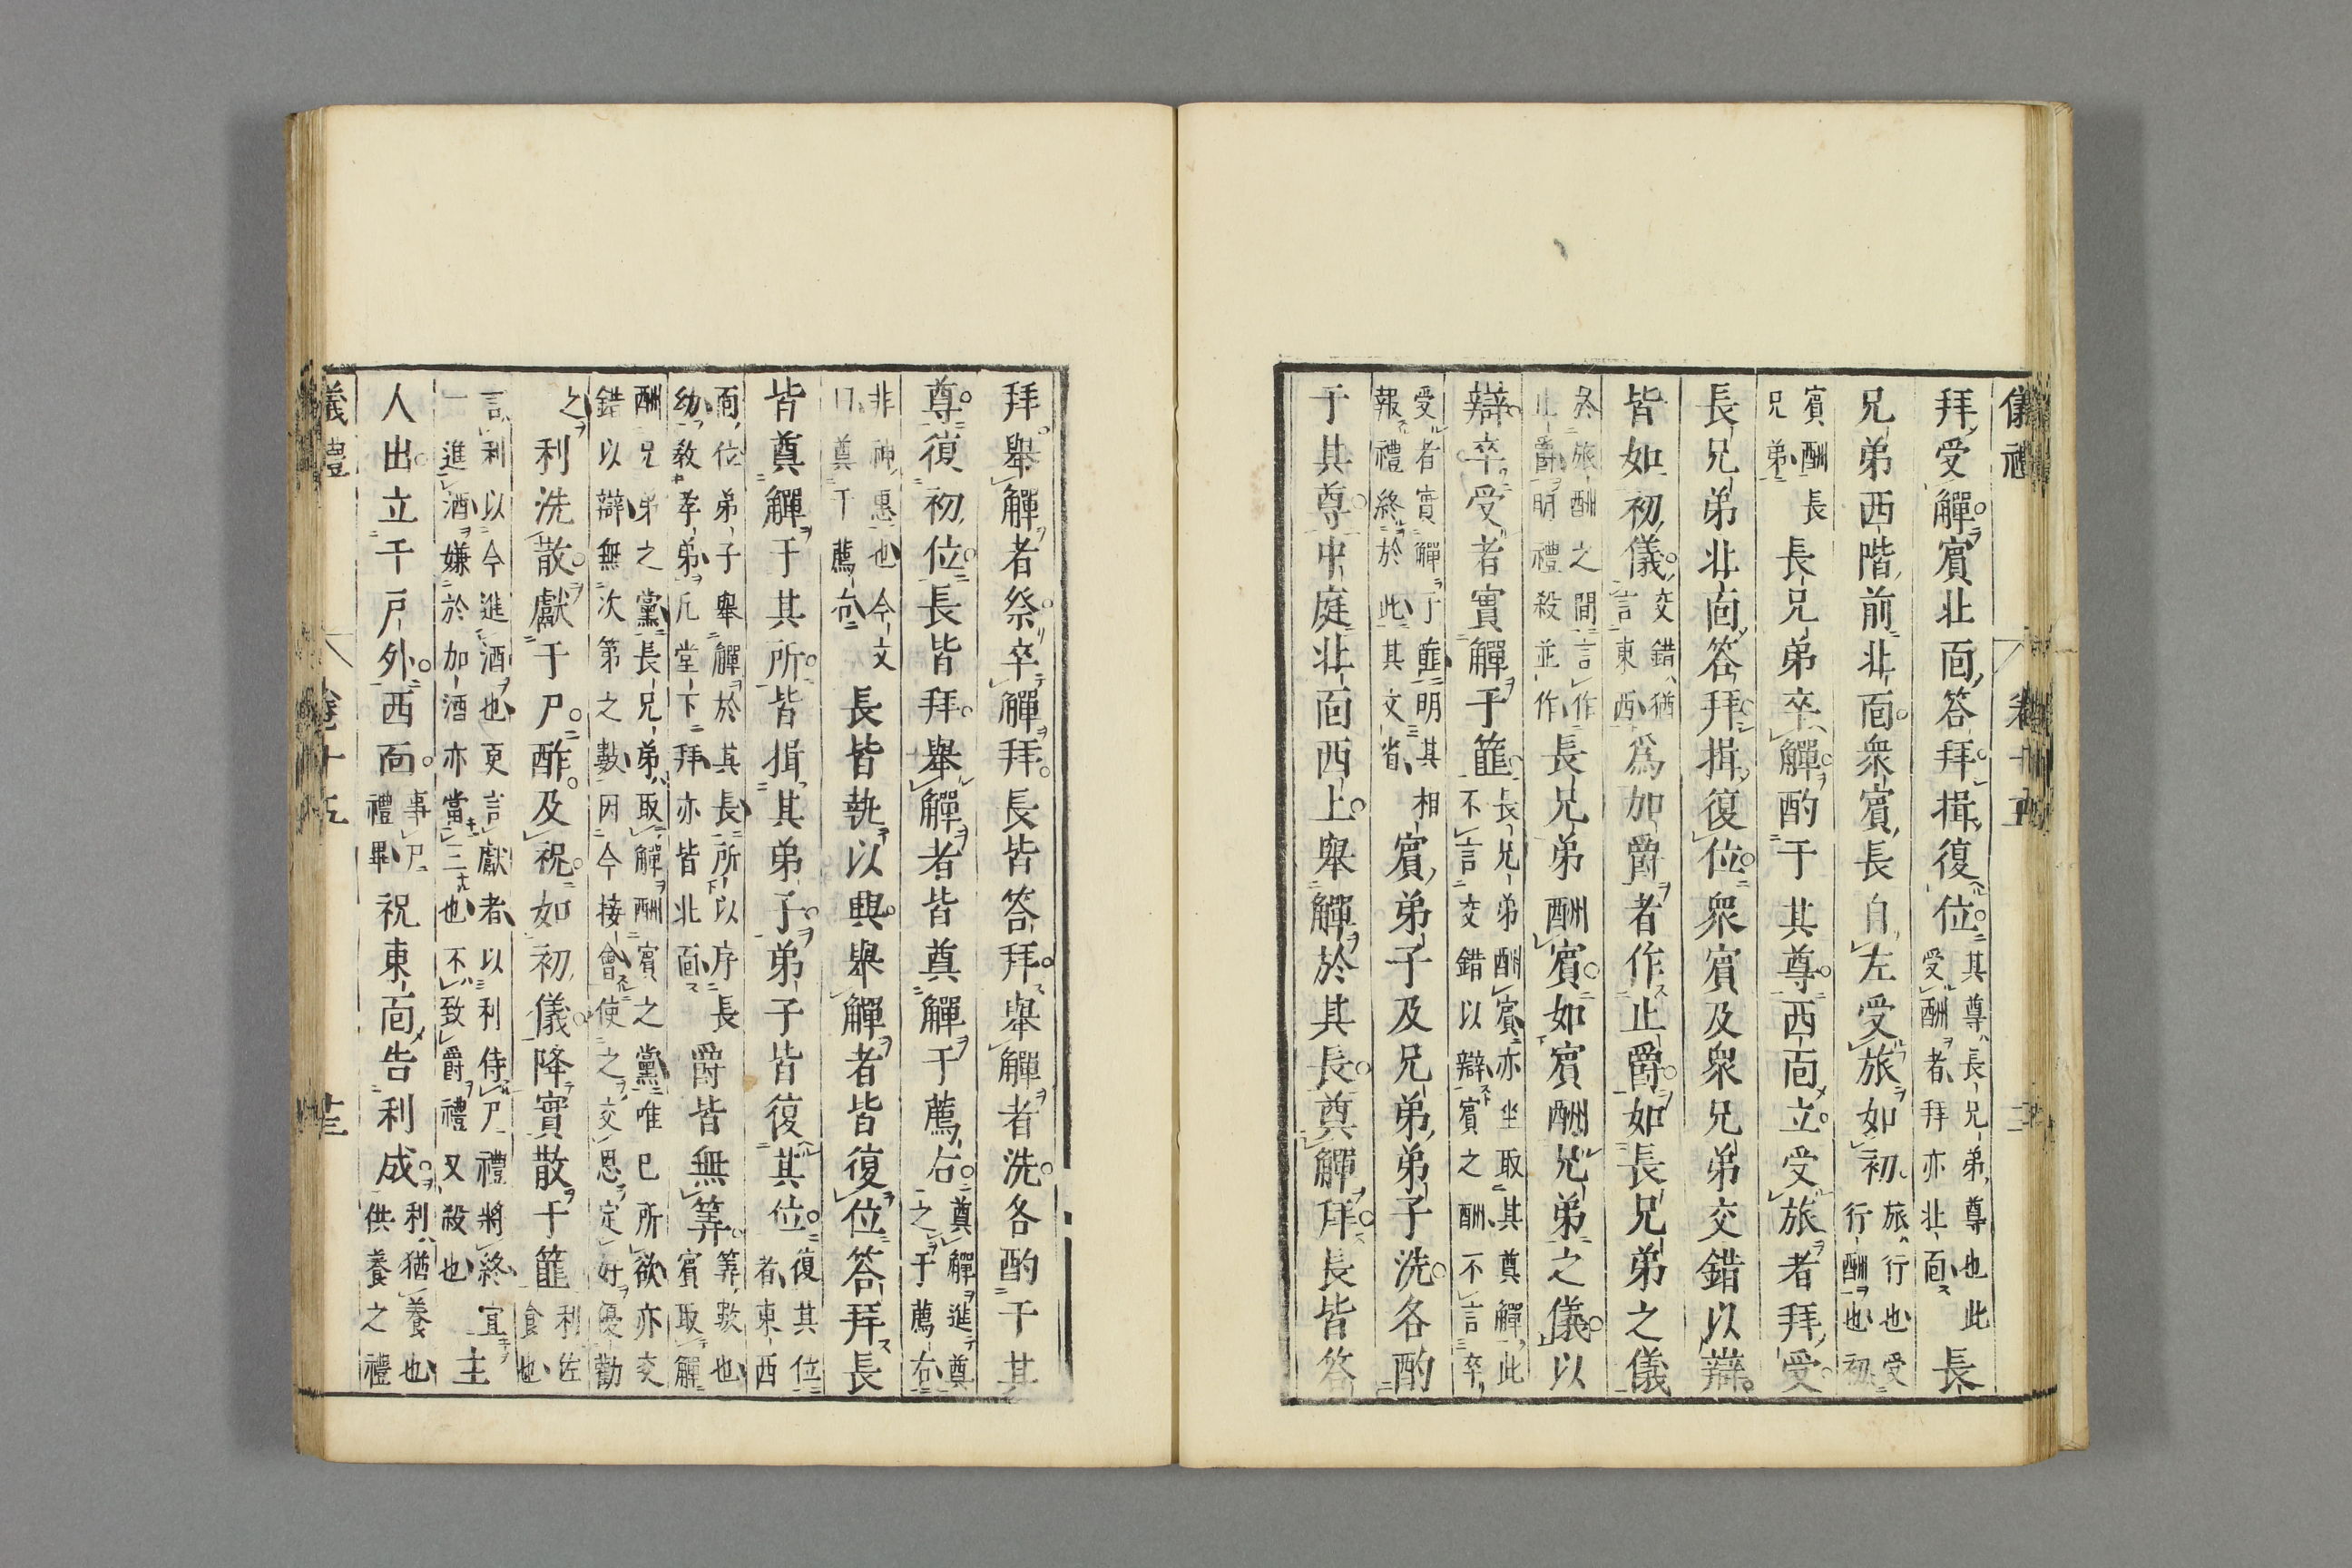 儀禮 卷十五
拜受觶賓北面答拜揖復位其尊長兄弟尊也此受酬者拜亦北面長
兄弟西階前北面衆賓長自左受旅如初旅行也受行酬也初
賓酬長兄弟長兄弟卒觶酌于其尊西面立受旅者拜受
長兄弟北面答拜揖復位衆賓及衆兄弟交錯以辯
皆如初儀交錯猶言東西爲加爵者作止爵如長兄弟之儀
於旅酬之間言作止爵明禮殺並作長兄弟酬賓如賓酬兄弟之儀以
辯卒受者實觶于篚長兄弟酬賓亦坐取其奠觶此不言交錯以辯賓之酬不言卒
受者實觶于篚明其相報禮終於此其文省賓弟子及兄弟弟子洗各酌
于其尊中庭北面西上舉觶於其長奠觶拜長皆答
拜舉觶者祭卒觶拜長皆答拜舉觶者洗各酌于其
尊復初位長皆拜舉觶者皆奠觶于薦右奠觶進奠之于薦右
非神惠也今文曰奠于薦右長皆執以興舉觶者皆復位答拜長
皆奠觶于其所皆揖其弟子弟子皆復其位復其位者東西
面位弟子舉觶於其長所以序長幼教孝弟凡堂下拜亦皆北面爵皆無筭筭數也賓取觶
酬兄弟之黨長兄弟取觶酬賓之黨唯已所欲亦交錯以辯無次第之數因今接會使之交恩定好優勸
之利洗散獻于尸酢及祝如初儀降實散于篚利佐食也
言利以今進酒也更言獻者以利侍尸禮將終宜一進酒嫌於加酒亦當三也不致爵禮又殺也主
人出立于戶外西面事尸禮畢祝東面告利成利猶養也供養之禮
儀禮 卷十五 十三